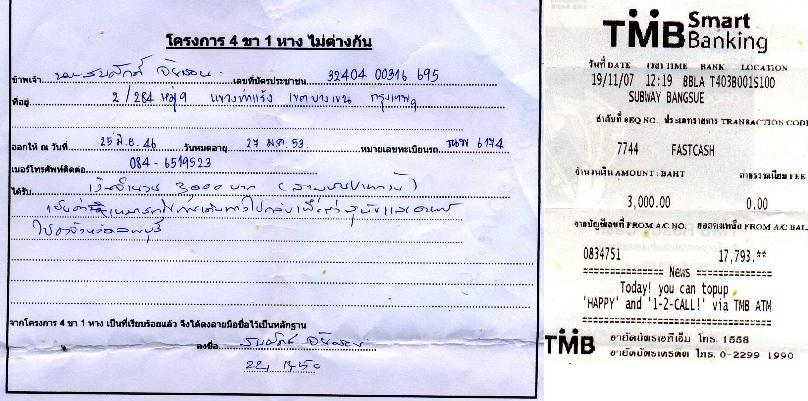 โครงการ 4 ขา 1 หาง ไม่ต่างกัน
ข้าพเจ้า เลขที่บัตรประชาชน 32404 00316 695
ที่อยู่ 2/284 หมู่ 9 แขวงท่าแร้ง เขตบางเขน กรุงเทพฯ
ออกให้ ณ วันที่ 25 มิ.ย. 46 วันหมดอายุ 27 ม.ค. 53 หมายเลขทะเบียนรถ 6174
เบอร์โทรศัพท์ติดต่อ 084-6519523
ได้รับ เงินจำนวน 3,000 บาท (สามพันบาทถ้วน)
จากโครงการ 4 ขา 1 หาง เป็นที่เรียบร้อยแล้ว จึงได้ลงลายมือชื่อไว้เป็นหลักฐาน
ลงชื่อ
TMB Smart Banking
วันที่ DATE เวลา TIME BANK LOCATION
19/11/07 12:19 BBLA T403B001S100
SUBWAY BANGSUE
ลำดับที่ SEQ NO. ประเภทรายการ TRANSACTION CODE
7744 FASTCASH
จำนวนเงิน AMOUNT : BAHT ค่าธรรมเนียม FEE
3,000.00 0.00
จากบัญชีเลขที่ FROM A/C NO. ยอดคงเหลือ FROM A/C BAL.
0834751 17,793.**
=============== News ===============
Today! you can topup
'HAPPY' and '1-2-CALL!' via TMB ATM
===================================
TMB อายัดบัตรเอทีเอ็ม โทร. 1558
อายัดบัตรเครดิต โทร. 0-2299 1990